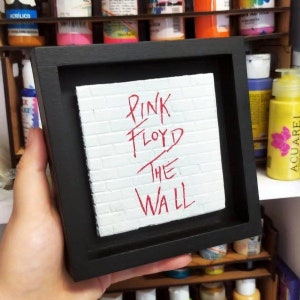 PINK
FLOYD
THE
WALL
ACRÍLICO
ACUAREL